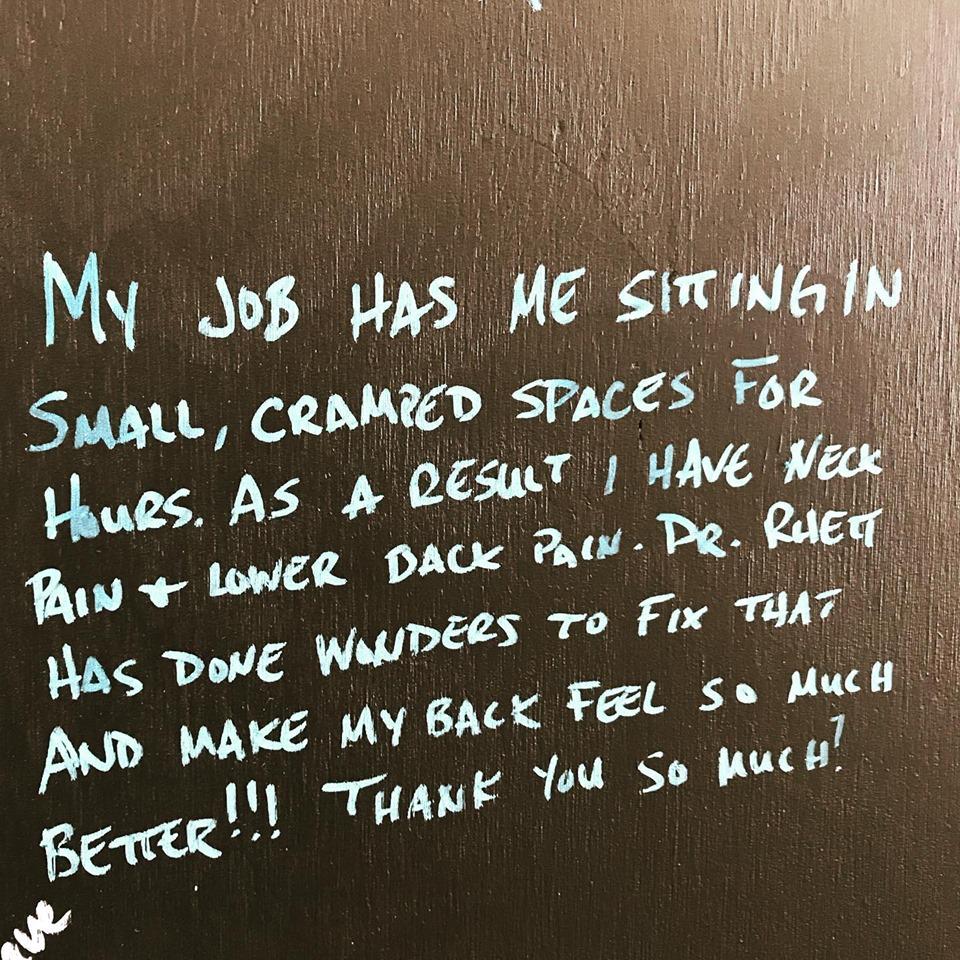 My JOB HAS ME SITTING IN
SMALL, CRAMPED SPACES FOR
HOURS. AS A RESULT I HAVE NECK
PAIN + LOWER BACK PAIN. DR. RHETT
HAS DONE WONDERS TO FIX THAT
AND MAKE MY BACK FEEL SO MUCH
BETTER!!! THANK YOU SO MUCH!